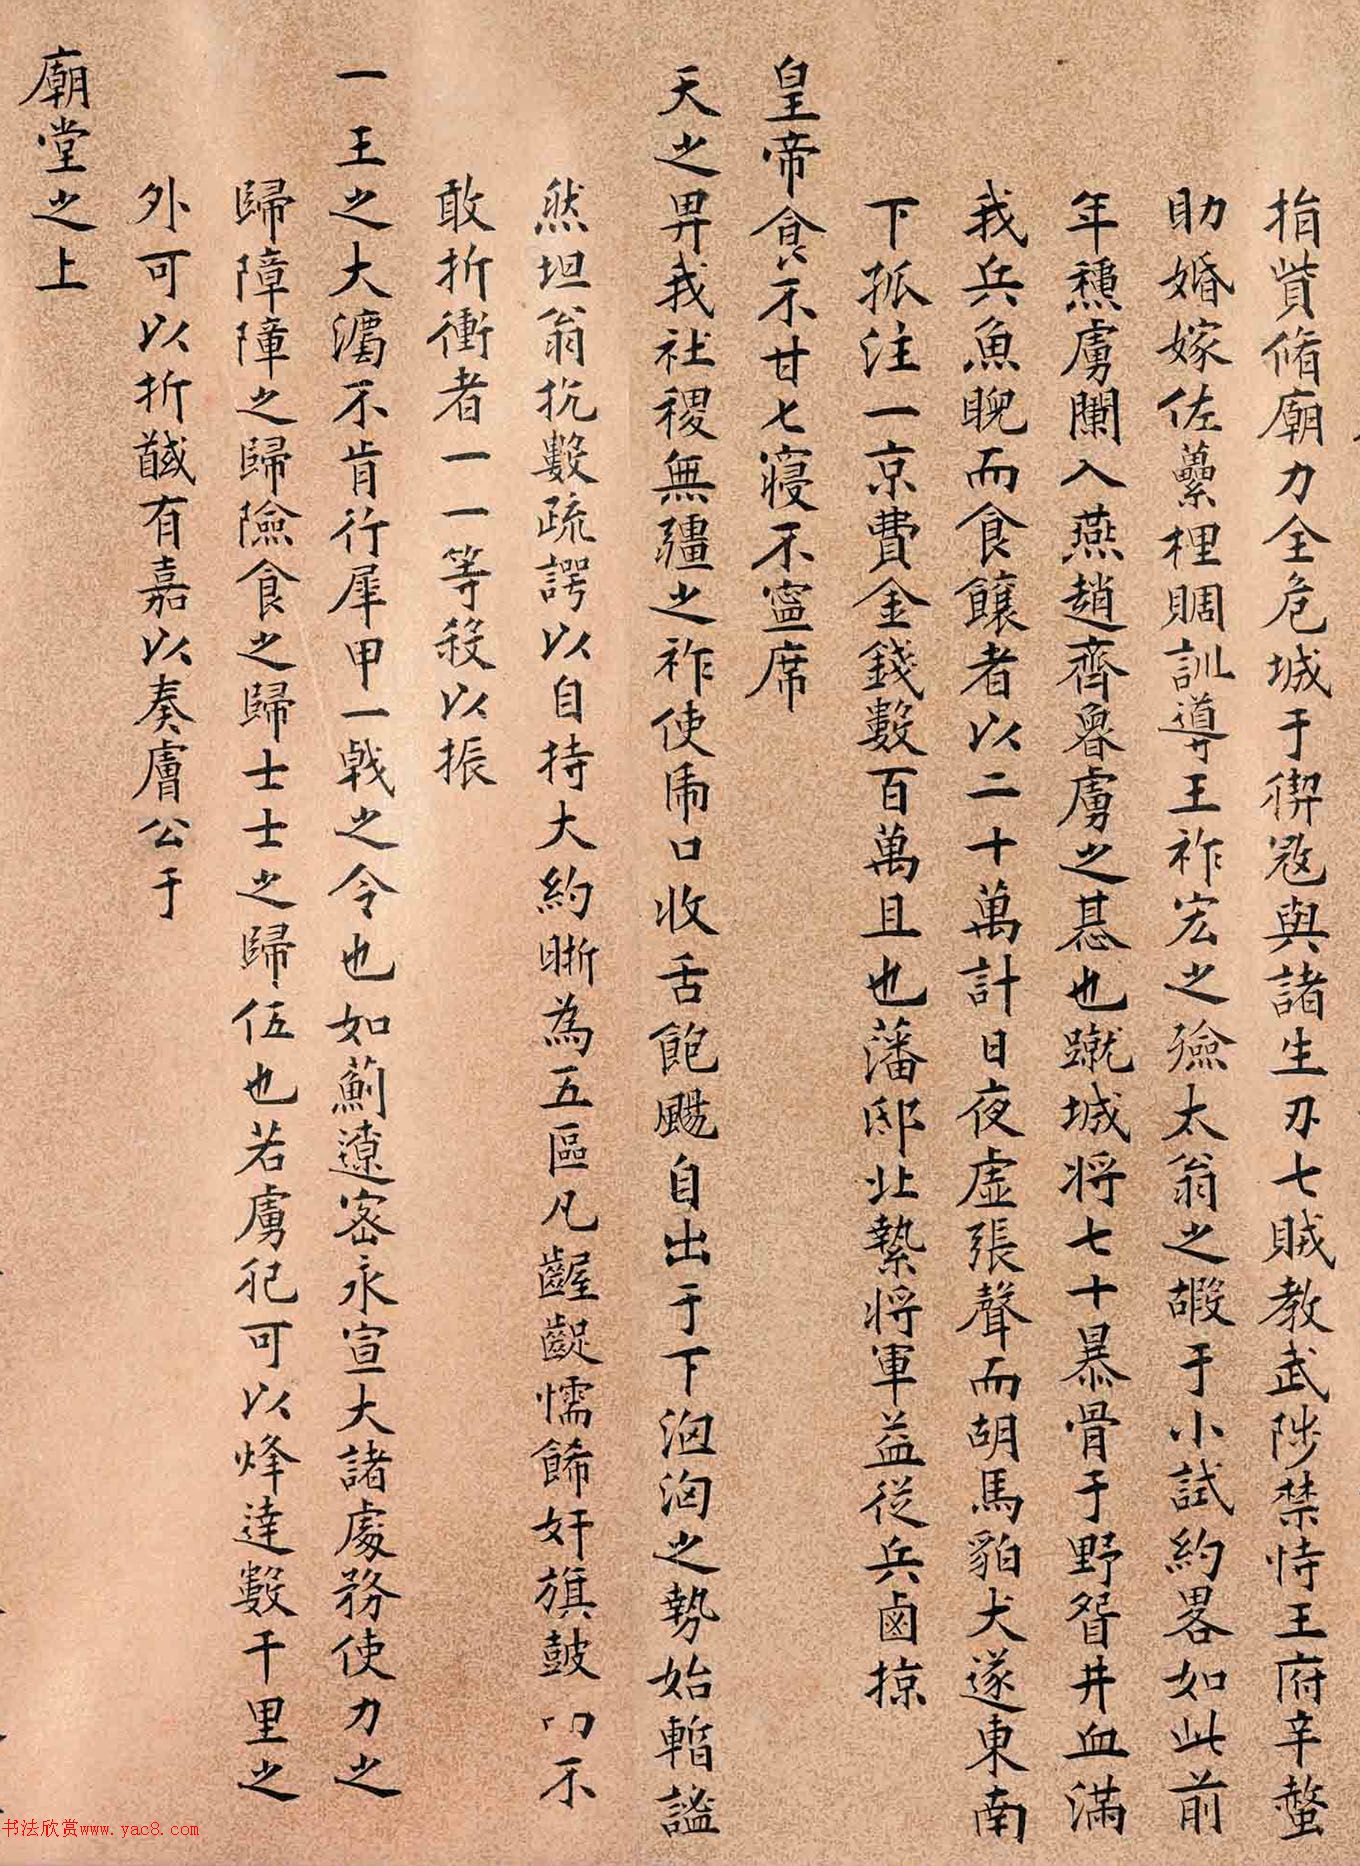 捐貲脩廟力全危城于禊寇與諸生刃七賊教武陟禁恃王府辛螫
助婚嫁佐虆梩賙訓導王祚宏之殮太翁之嘏于小試約畧如此前
年穮虜闌入燕趙齊魯虜之惎也蹴城將七十暴骨于野眢井血滿
我兵魚睨而食饟者以二十萬計日夜虛張聲而胡馬貊犬遂東南
下孤注一京費金錢數百萬且也藩邸北縶將軍益從兵鹵掠
皇帝食不甘七寢不寧席
天之畀我社稷無疆之祚使虜口收舌飽颺自出于下洶洶之勢始暫謐
然坦翁抗數疏諤以自持大約晰為五區凡齷齪懦餙奸旗鼓不
敢折衝者一一等殺以振
一王之大瀆不肯行犀甲一戟之令也如薊遼密永宣大諸處務使力之
歸障障之歸險食之歸士士之歸伍也若虜犯可以烽達數千里之
外可以折馘有嘉以奏膚公于
廟堂之上
书法欣赏www.yac8.com